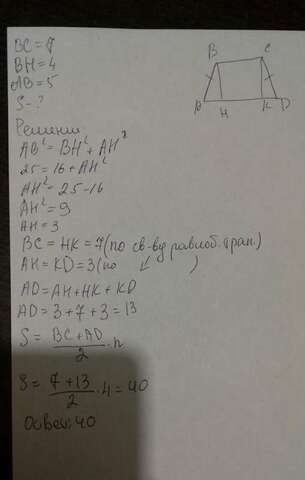 BC = 7
BH = 4
AB = 5
S - ?
B C
A H K D
Решение
AB² = BH² + AH²
25 = 16 + AH²
AH² = 25 - 16
AH² = 9
AH = 3
BC = HK = 7 (по св-ву равноб. трап.)
AH = KD = 3 (по ↙ )
AD = AH + HK + KD
AD = 3 + 7 + 3 = 13
S = BC + AD / 2 · h
S = 7 + 13 / 2 · 4 = 40
Ответ: 40